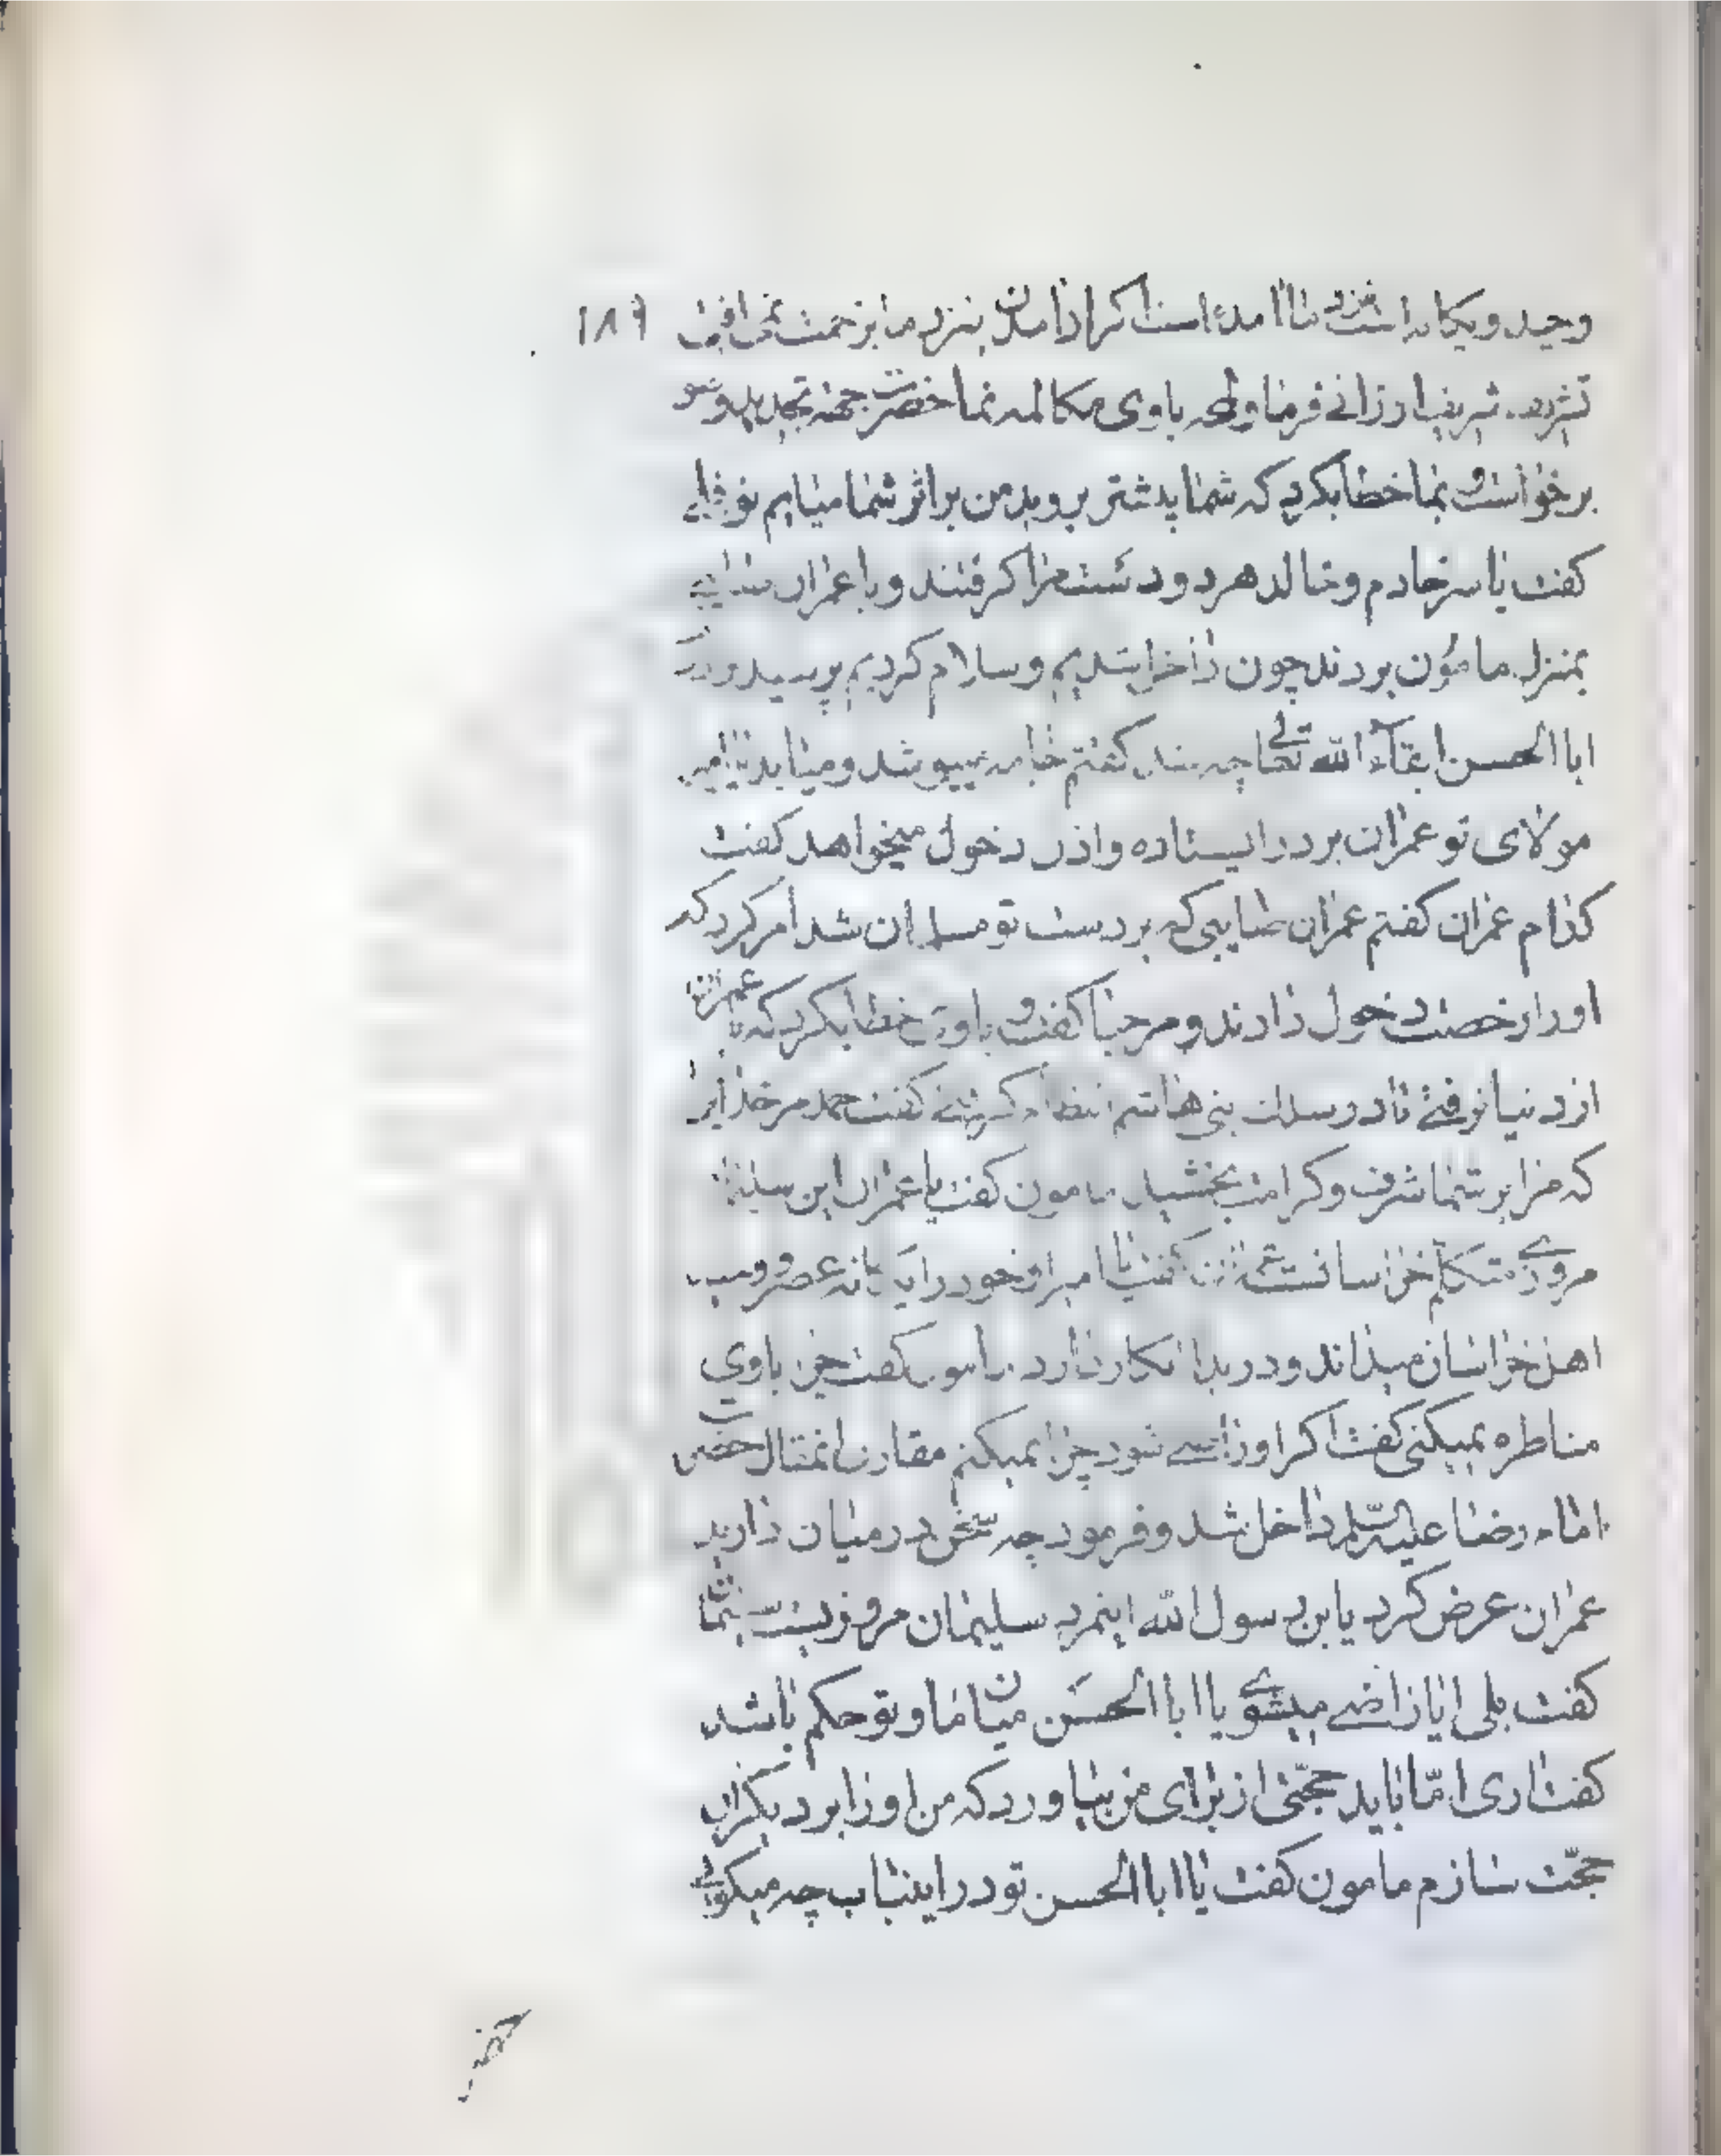 وحید و یکانه است نزد ما امده است اکر از امدن بنزد ما بر زحمت نمی افتی ۱۸۹
تشریف ارزانی فرما و با وی مکالمه نما حضرت جهة تجدید وضو
برخواست و بما خطاب کرد که شما پیشتر بروید من بر اثر شما میایم نوفلی
کفت یاسر خادم و خالد هر دو دست مرا کرفتند و با عمران صابی
بمنزل مامون بردند چون داخل شدیم و سلام کردیم پرسید برادر
ابا الحسن ابقاه الله تعالی چه شد کفتم جامه میپوشد و میاید یا امیر
مولای تو عمران بر در ایستاده و اذن دخول میخواهد کفت
کدام عمران کفتم عمران صابی که بر دست تو مسلمان شد امر کرد که
او را رخصت دخول دادند و مرحبا کفت و باوی خطاب کرد که یا عمران
از دنیا نرفتی تا در سلک بنی هاشم انتظام کرفتی کفت حمد مر خدای را
که مرا بر شما شرف و کرامت بخشید مامون کفت یا عمران این سلیمان
مروزی متکلم خراسانست عمران کفت یا امیر او خود را یکانه عصر و
اهل خراسان میداند و در بدا انکار دارد مامون کفت چرا باوی
مناظره نمیکنی کفت اکر او راضی شود چرا نمیکنم مقارن انمقال حضرت
امام رضا علیه السلم داخل شد و فرمود چه سخن در میان دارید
عمران عرض کرد یابن رسول الله اینمرد سلیمان مروزیست سلیمان
کفت بلی ایا راضی میشوی یا ابا الحسن میان ما و تو حکم باشد
کفت اری امّا باید حجّتی از برای من بیاورد که من او را بر دیکران
حجّت سازم مامون کفت یا ابا الحسن تو در اینباب چه میکوئی
حضر